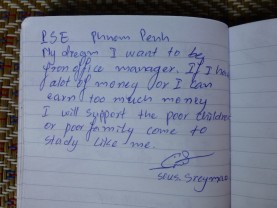 PSE Phnom Penh
My dream I want to be
fron office manager. If I have
alot of money or I can
earn too much money
I will support the poor children
or poor family come to
study like me.